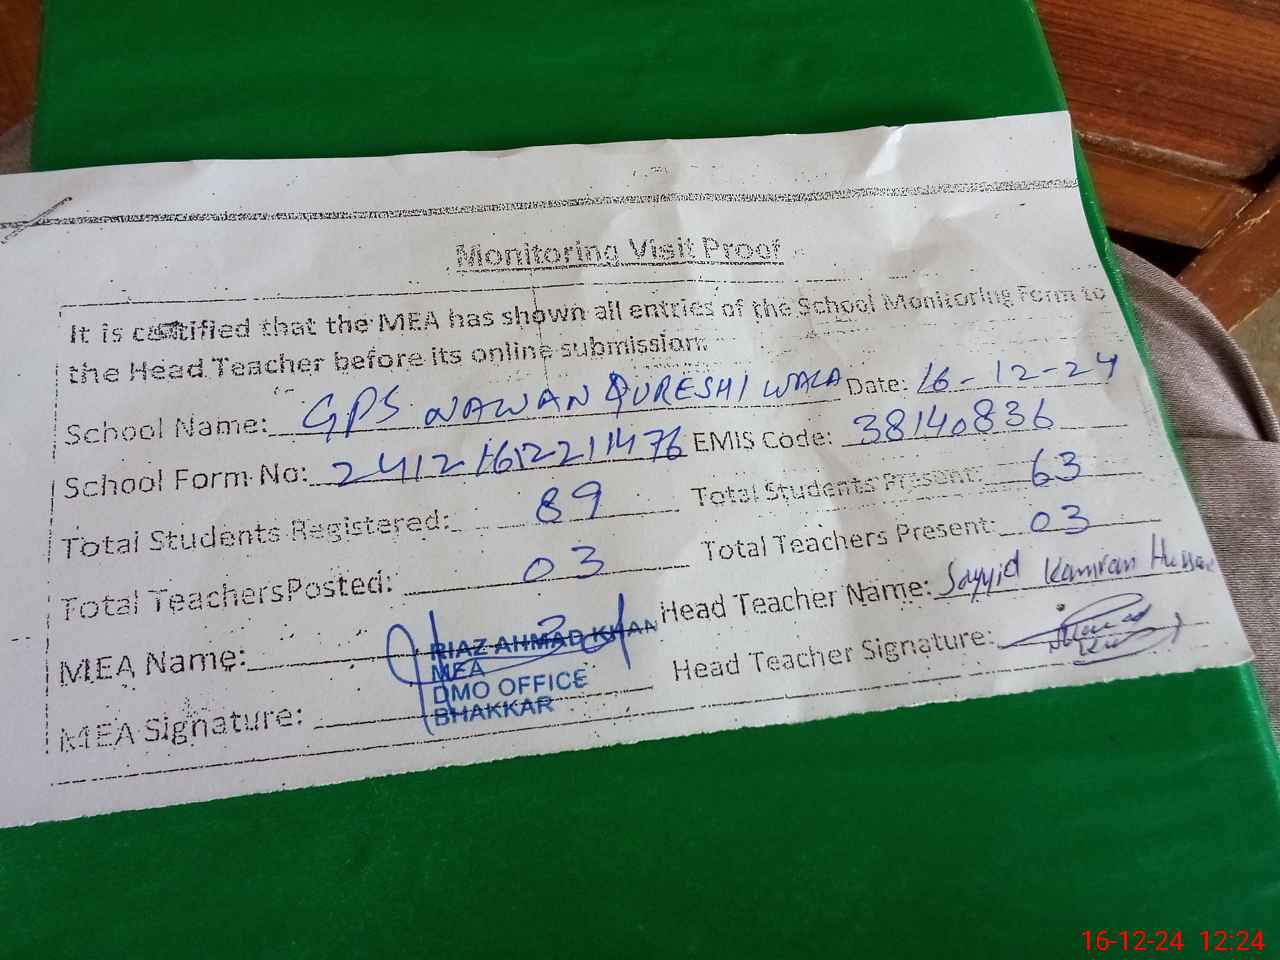 Monitoring Visit Proof
It is certified that the MEA has shown all entries of the School Monitoring Form to
the Head Teacher before its online submission.
School Name: GPS NAWAN QURESHI WALA Date: 16-12-24
School Form No: 2412161221476 EMIS Code: 38140836
Total Students Registered: 89 Total Students Present: 63
Total TeachersPosted: 03 Total Teachers Present: 03
MEA Name: RIAZ AHMAD KHAN Head Teacher Name: Sayyid Kamran Hussain
MEA
DMO OFFICE
BHAKKAR
MEA Signature: Head Teacher Signature:
16-12-24 12:24